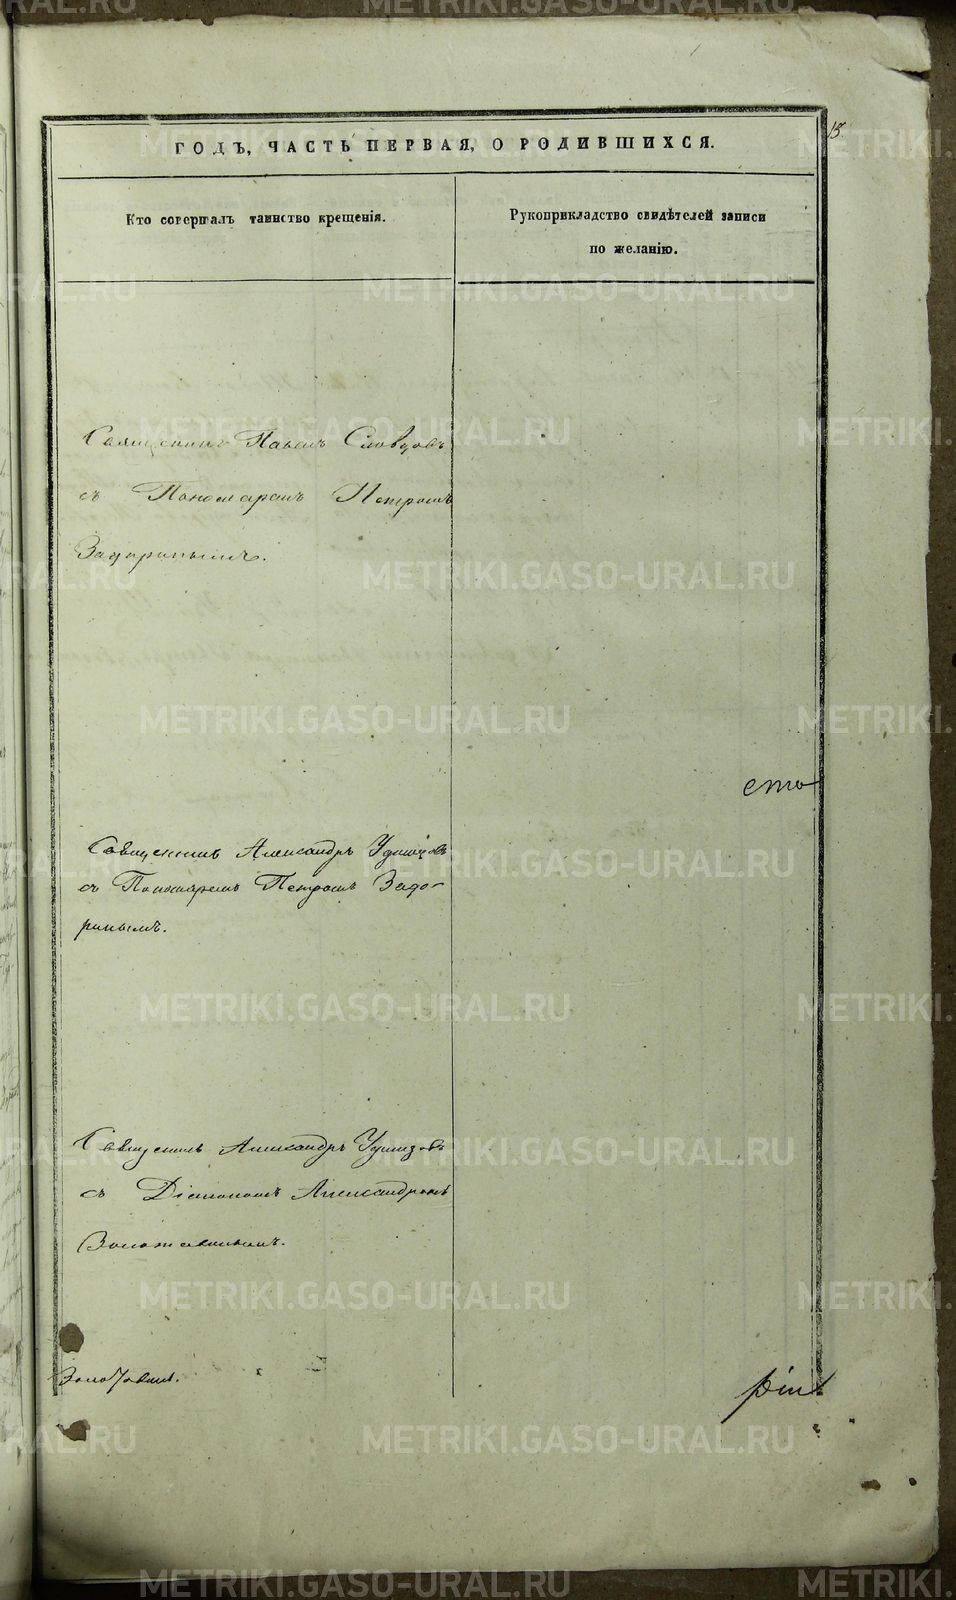 METRIKI.GASO-URAL.RU
18.
ГОДЪ, ЧАСТЬ ПЕРВАЯ, О РОДИВШИХСЯ.
Кто совершалъ таинство крещенія.
Рукоприкладство свидѣтелей записи
по желанію.
Священникъ Павелъ Словцовъ
съ Пономаремъ Петромъ
Задоринымъ.
сто
Священникъ Александръ
съ Пономаремъ Петромъ Задо-
ринымъ.
Священникъ Александръ
съ Діакономъ Александромъ